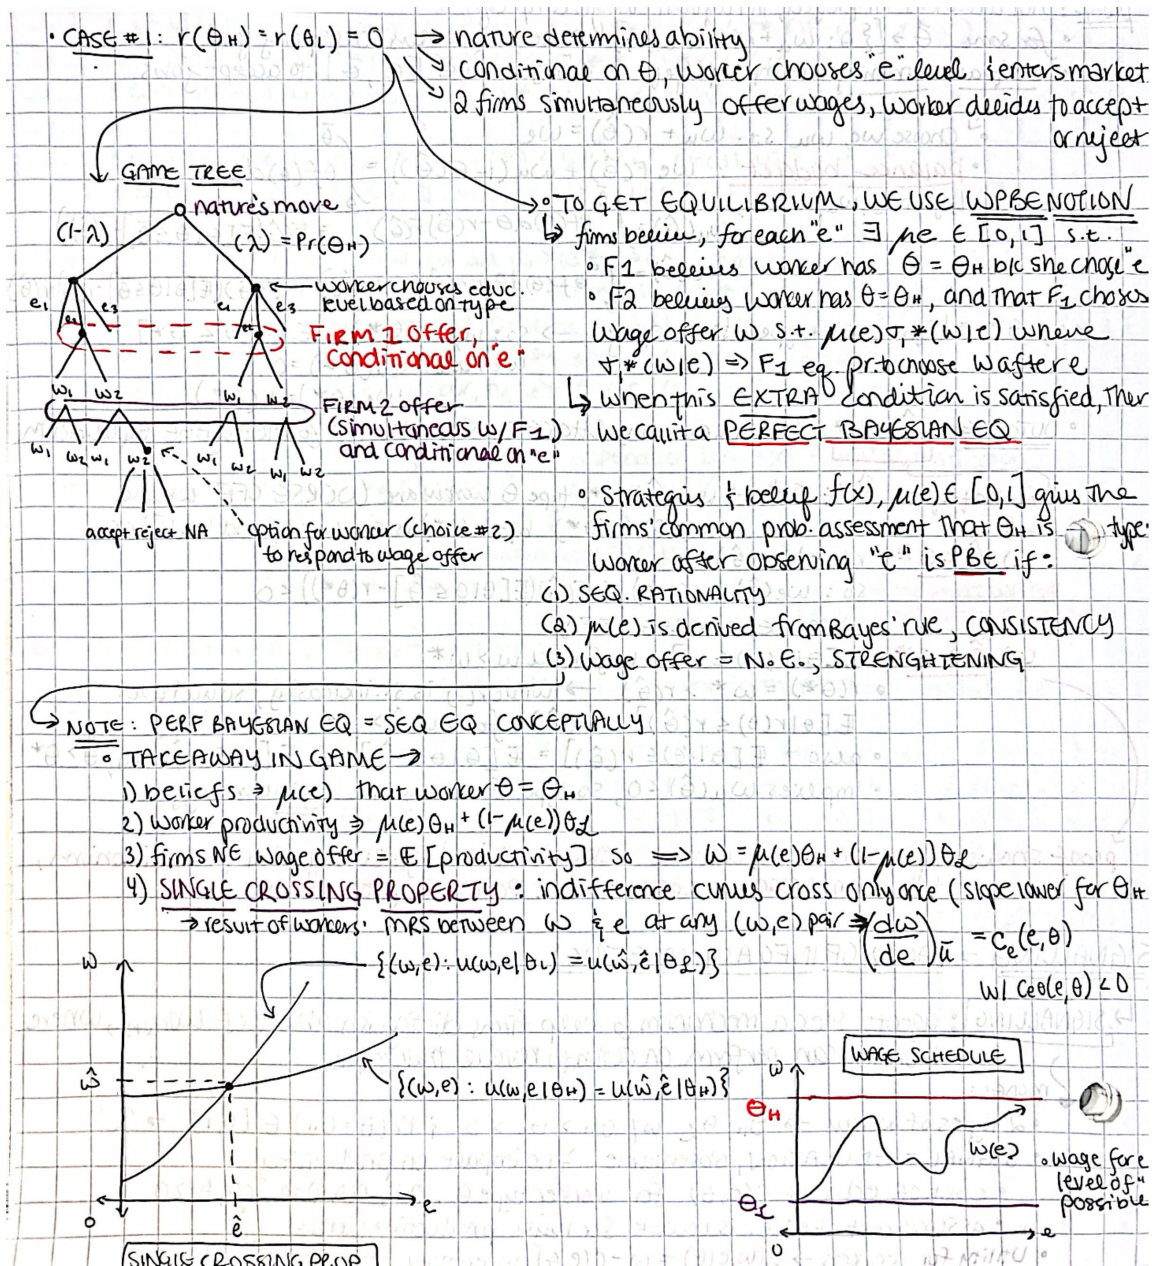 • CASE #1: r(θH) = r(θL) = 0 → nature determines ability
→ conditional on θ, worker chooses "e" level & enters market
→ 2 firms simultaneously offer wages, worker decides to accept
or reject
GAME TREE
nature's move
(1-λ)
(λ) = Pr(θH)
worker chooses educ.
level based on type
e1 e2 e3 e1 e2 e3
FIRM 1 offer,
conditional on "e"
w1 w2 w1 w2
FIRM 2 offer
(simultaneous w/ F1)
and conditional on "e"
w1 w2 w1 w2 w1 w2 w1 w2
accept reject NA
option for worker (choice #2)
to respond to wage offer
• TO GET EQUILIBRIUM, WE USE WPBE NOTION
↳ firms believe, for each "e" ∃ μe ∈ [0,1] s.t.
• F1 beleives worker has θ = θH b/c she chose "e
• F2 believes worker has θ=θH, and that F1 choses
wage offer w s.t. μ(e)σ1*(w|e) where
σ1*(w|e) => F1 eq. pr. to choose w after e
↳ when this EXTRA condition is satisfied, then
we call it a PERFECT BAYESIAN EQ
• Strategies & belief f(x), μ(e) ∈ [0,1] gives the
firms' common prob. assessment that θH is type
worker after observing "e" is PBE if:
(1) SEQ. RATIONALITY
(2) μ(e) is derived from Bayes' rule, CONSISTENCY
(3) wage offer = N.E., STRENGHTENING
→ NOTE: PERF BAYESIAN EQ = SEQ EQ CONCEPTUALLY
• TAKEAWAY IN GAME →
1) beliefs ⇒ μ(e) that worker θ = θH
2) worker productivity ⇒ μ(e)θH + (1-μ(e))θL
3) firms NE wage offer = E[productivity] so ⟹ w = μ(e)θH + (1-μ(e))θL
4) SINGLE CROSSING PROPERTY: indifference curves cross only once (slope lower for θH
→ result of workers' MRS between w & e at any (w,e) pair ⇒ (dw/de)ū = ce(e,θ)
w/ ceθ(e,θ) < 0
w
{(w,e): u(w,e|θL) = u(ŵ,ê|θL)}
ŵ
{(w,e): u(w,e|θH) = u(ŵ,ê|θH)}
0 ê e
SINGLE CROSSING PROP
WAGE SCHEDULE
w
θH
w(e)
θL
0 e
• wage for e
level of
possible